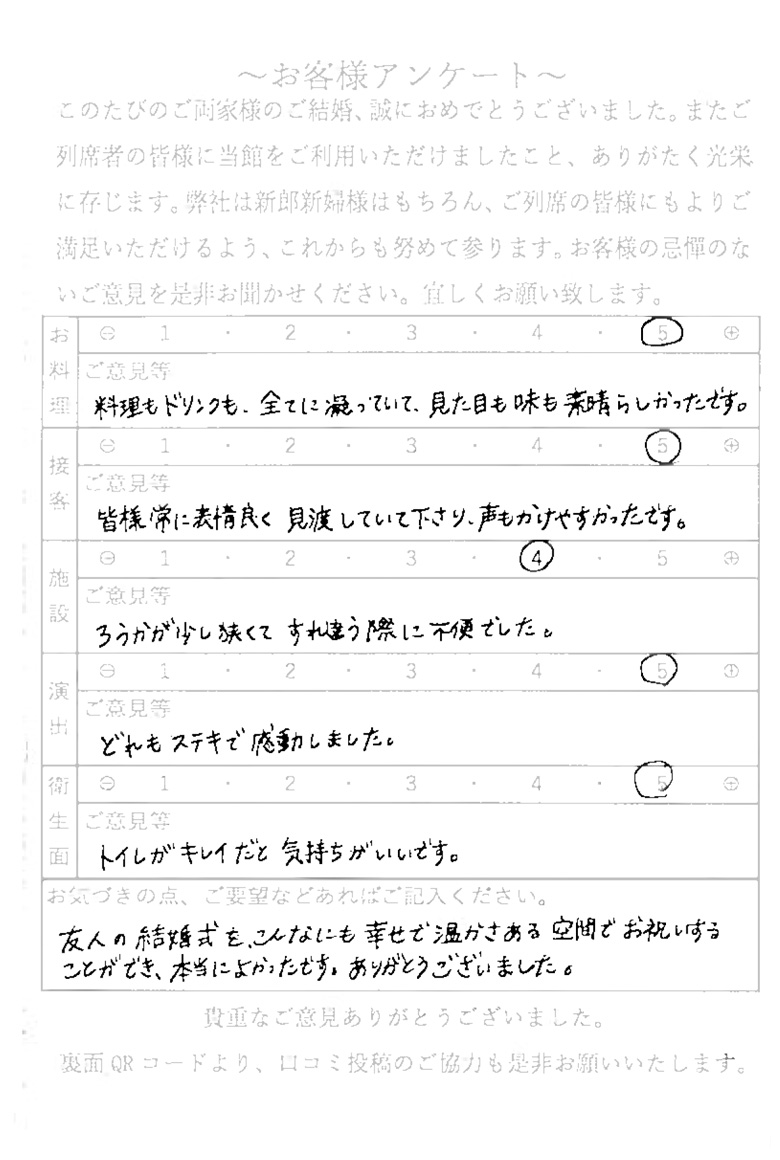 ～お客様アンケート～
このたびのご両家様のご結婚、誠におめでとうございました。またご
列席者の皆様に当館をご利用いただけましたこと、ありがたく光栄
に存じます。弊社は新郎新婦様はもちろん、ご列席の皆様にもよりご
満足いただけるよう、これからも努めて参ります。お客様の忌憚のな
いご意見を是非お聞かせください。宜しくお願い致します。
お料理 ⊖ 1 ・ 2 ・ 3 ・ 4 ・ 5 ⊕
ご意見等
料理もドリンクも、全てに凝っていて、見た目も味も素晴らしかったです。
接客 ⊖ 1 ・ 2 ・ 3 ・ 4 ・ 5 ⊕
ご意見等
皆様常に表情良く見渡していて下さり、声もかけやすかったです。
施設 ⊖ 1 ・ 2 ・ 3 ・ 4 ・ 5 ⊕
ご意見等
ろうかが少し狭くてすれ違う際に不便でした。
演出 ⊖ 1 ・ 2 ・ 3 ・ 4 ・ 5 ⊕
ご意見等
どれもステキで感動しました。
衛生面 ⊖ 1 ・ 2 ・ 3 ・ 4 ・ 5 ⊕
ご意見等
トイレがキレイだと気持ちがいいです。
お気づきの点、ご要望などあればご記入ください。
友人の結婚式を、こんなにも幸せで温かさある空間でお祝いする
ことができ、本当によかったです。ありがとうございました。
貴重なご意見ありがとうございました。
裏面QRコードより、口コミ投稿のご協力も是非お願いいたします。